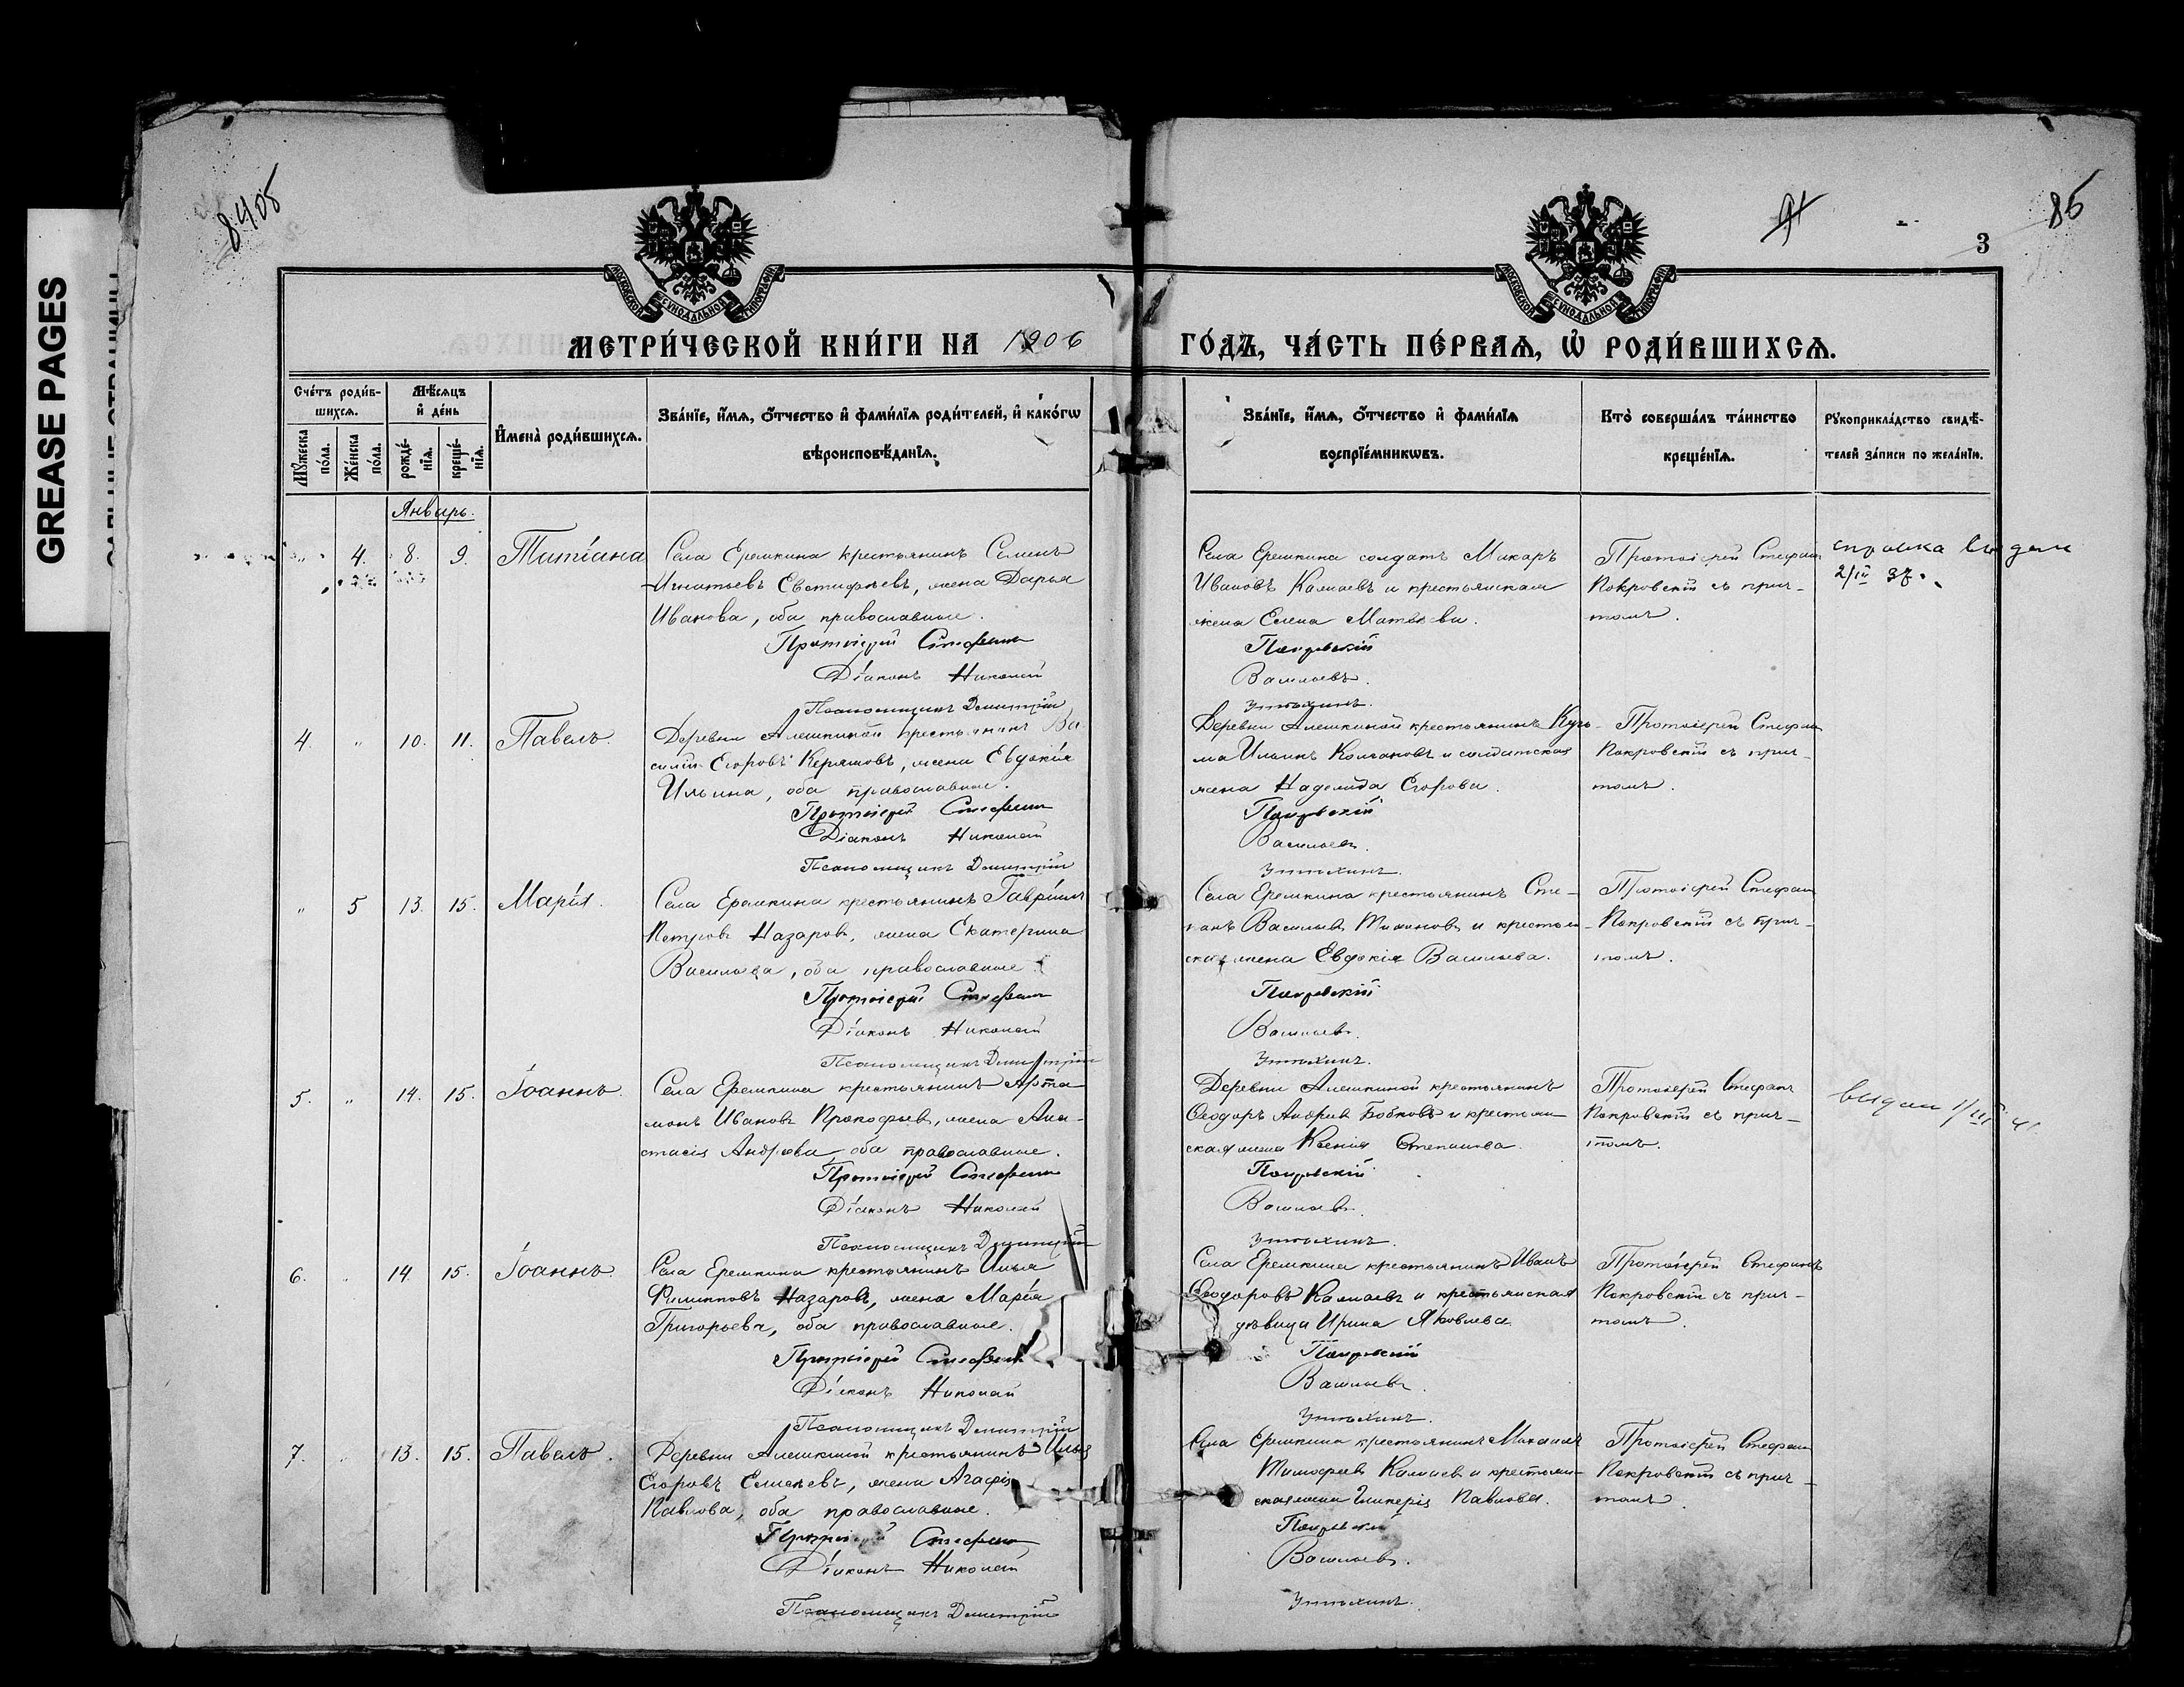 GREASE PAGES
8405
85
3
МОСКОВСКОЙ СУНОДАЛЬНОЙ ТИПОГРАФІИ
МОСКОВСКОЙ СУНОДАЛЬНОЙ ТИПОГРАФІИ
МЕТРИ́ЧЕСКОЙ КНИ́ГИ НА 1906 ГО́ДЪ, ЧА́СТЬ ПЕ́РВАѦ, Ѡ РОДИ́ВШИХСѦ.
Сче́тъ роди́в-
шихсѧ.
Мѣ́сѧцъ
и҆ де́нь
Мꙋ́жеска
по́ла.
Же́нска
по́ла.
рожде́-
нїѧ.
креще́-
нїѧ.
И҆мена̀ роди́вшихсѧ.
Зва́нїе, и҆́мѧ, ѻ҆́тчество и҆ фами́лїѧ роди́телей, и҆ како́гѡ
вѣроисповѣ́данїѧ.
Зва́нїе, и҆́мѧ, ѻ҆́тчество и҆ фами́лїѧ
воспрїе́мникѡвъ.
Кто̀ соверша́лъ та́инство
креще́нїѧ.
Рꙋкоприкла́дство свидѣ́-
телей за́писи по жела́нїю.
Январь.
„ 4. 8. 9. Татіана
Села Еремкина крестьянинъ Семенъ
Игнатьевъ Евстифѣевъ, жена Дарья
Иванова, оба православные.
Протоіерей Стефанъ
Діаконъ Николай
Псаломщикъ Димитрій
Села Еремкина солдатъ Макаръ
Ивановъ Камаевъ и крестьянская
жена Елена Матвѣева.
Покровскій
Васильевъ.
Утѣхинъ.
Протоіерей Стефанъ
Покровскій съ прич-
томъ.
справка выдана
2/III 37.
4. „ 10. 11. Павелъ.
Деревни Алешкиной крестьянинъ Ва
силій Егоровъ Керяковъ, жена Евдокія
Ильина, оба православные.
Протоіерей Стефанъ
Діаконъ Николай
Псаломщикъ Димитрій
Деревни Алешкиной крестьянинъ Кузь-
ма Ильинъ Колчановъ и солдатская
жена Надежда Егорова.
Покровскій
Васильевъ.
Утѣхинъ.
Протоіерей Стефанъ
Покровскій съ прич-
томъ.
„ 5 13. 15. Марія.
Села Еремкина крестьянинъ Гавріилъ
Петровъ Назаровъ, жена Екатерина
Васильева, оба православные.
Протоіерей Стефанъ
Діаконъ Николай
Псаломщикъ Димитрій
Села Еремкина крестьянинъ Сте-
панъ Васильевъ Тихоновъ и крестьян-
ская жена Евдокія Васильева.
Покровскій
Васильевъ.
Утѣхинъ.
Протоіерей Стефанъ
Покровскій съ прич-
томъ.
5. „ 14. 15. Іоаннъ.
Села Еремкина крестьянинъ Арта
монъ Ивановъ Прокофьевъ, жена Ана-
стасія Андреева, оба православные.
Протоіерей Стефанъ
Діаконъ Николай
Псаломщикъ Димитрій
Деревни Алешкиной крестьянинъ
Ѳеодоръ Андреевъ Бобковъ и крестьян-
ская жена Ксенія Степанова.
Покровскій
Васильевъ.
Утѣхинъ.
Протоіерей Стефанъ
Покровскій съ прич-
томъ.
выдан
6. „ 14. 15. Іоаннъ.
Села Еремкина крестьянинъ Илья
Филипповъ Назаровъ, жена Марія
Григорьева, оба православные.
Протоіерей Стефанъ
Діаконъ Николай
Псаломщикъ Димитрій
Села Еремкина крестьянинъ Иванъ
Ѳеодоровъ Камаевъ и крестьянская
дѣвица Ирина Яковлева
Покровскій
Васильевъ.
Утѣхинъ.
Протоіерей Стефанъ
Покровскій съ прич-
томъ.
7. „ 13. 15. Павелъ.
Деревни Алешкиной крестьянинъ Илья
Егоровъ Елисѣевъ, жена Агафія
Павлова, оба православные.
Протоіерей Стефанъ
Діаконъ Николай
Псаломщикъ Димитрій
Села Еремкина крестьянинъ Михаилъ
Тимофеевъ Камаевъ и крестьян-
ская жена Гликерія Павлова.
Покровскій
Васильевъ.
Утѣхинъ.
Протоіерей Стефанъ
Покровскій съ прич-
томъ.